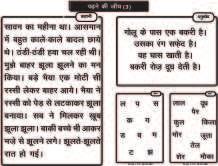 पढ़ने की जाँच (3)
कहानी
सावन का महीना था। आसमान
में बहुत काले-काले बादल छाये
थे। ठंडी-ठंडी हवा चल रही थी।
मुझे बाहर झूला झूलने का मन
किया। बड़े भैया एक मोटी सी
रस्सी लेकर बाहर आये। भैया ने
रस्सी को पेड़ से लटकाकर झूला
बनाया। सब ने मिलकर खूब
झूला झूला। बाकी बच्चे भी आकर
मजे से झूलने लगे। झूलते-झूलते
रात हो गई।
अनुच्छेद
गोलू के पास एक बकरी है।
उसका रंग सफेद है।
वह घास खाती है।
बकरी रोज़ दूध देती है।
ल प स
क ग
ड य म
ट झ
लाल दूध
पैर
कुल किला
मोर जूता
तेल
शेर